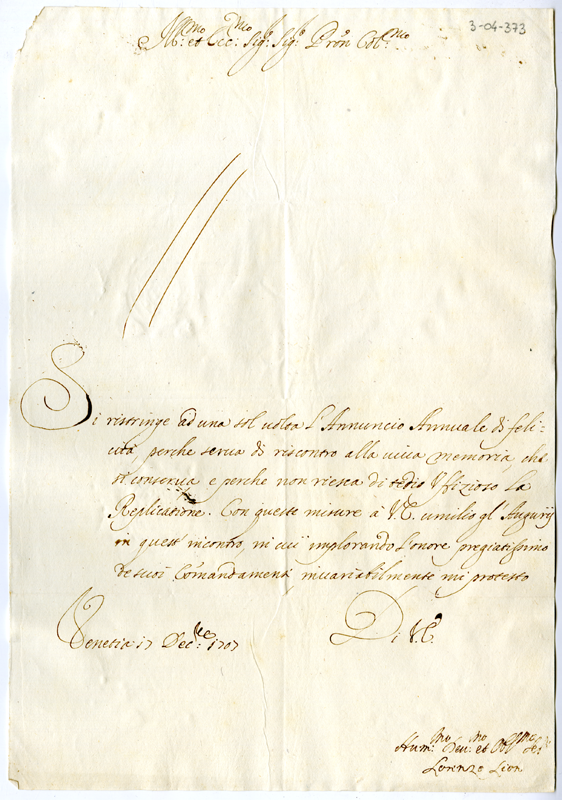 3-04-373
Ill:mo et Ecc:mo Sig:r Sig:r Pron Col:mo
Si ristringe ad una sol uolta L'Annuncio Annuale di feli=
cità perche serua di riscontro alla uiua memoria, che
si conserua e perche non riesca di tedio Vfizioso La
Replicatione. Con queste misure a V.E. umilio gl'Augurij
in quest'incontro, in cui implorando l'onore pregiatissimo
de suoi Comandamenti inuariabilmente mi protesto
Di V.E.
Venetia 17 Dec:bre 1707
Hum:mo Deu:mo et Obl:mo Se:r
Lorenzo Lion